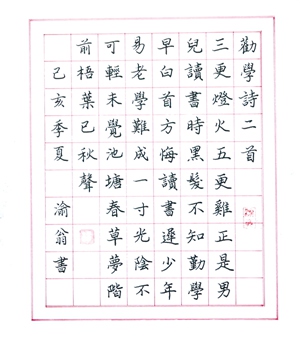 勸學詩二首
三更燈火五更雞正是男
兒讀書時黑髮不知勤學
早白首方悔讀書遲少年
易老學難成一寸光陰不
可輕未覺池塘春草夢階
前梧葉已秋聲
己亥季夏 渝翁書